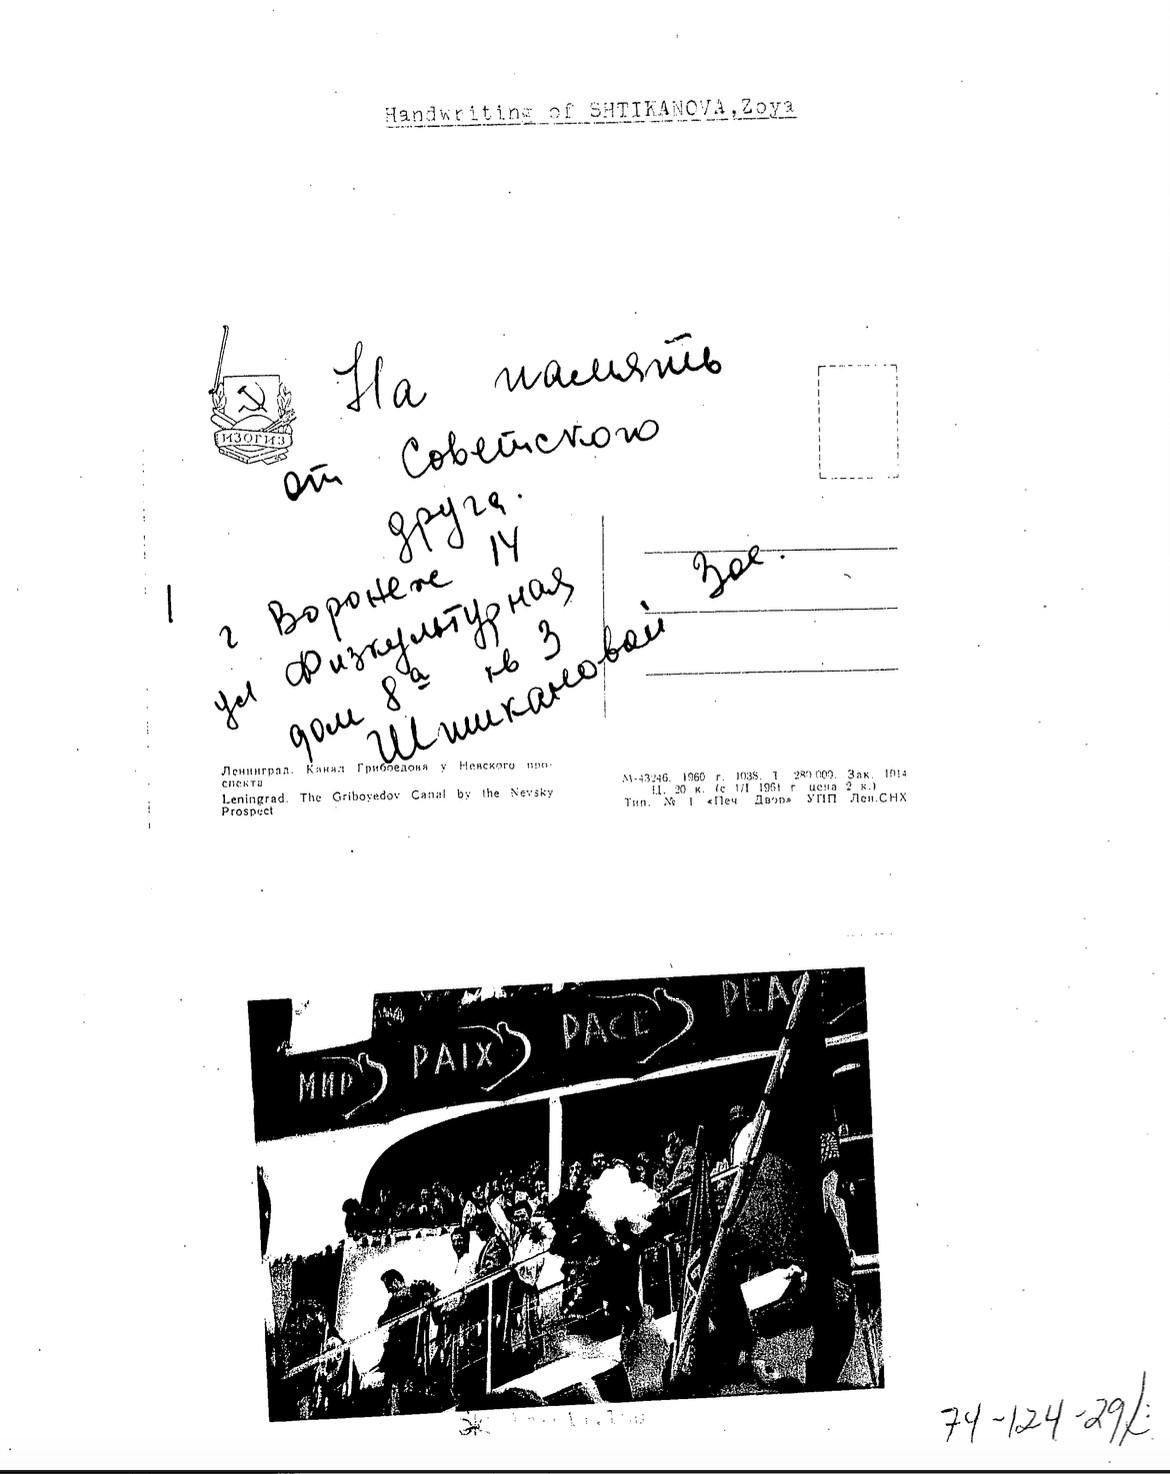 Handwriting of SHTIKANOVA,Zoya
ИЗОГИЗ
На память
от Советского
друга.
г Воронеж 14
ул Физкультурная
дом 8а кв 3
Штикановой Зое.
Ленинград. Канал Грибоедова у Невского про-
спекта
Leningrad. The Griboyedov Canal by the Nevsky
Prospect
М-43246. 1960 г. 1038. Т 280 000. Зак. 1014
Ц. 20 к. (с 1/I 1961 г цена 2 к.)
Тип. № 1 «Печ Двор» УПП Лен.СНХ
МИР PAIX PACE PEAC
74-124-29/